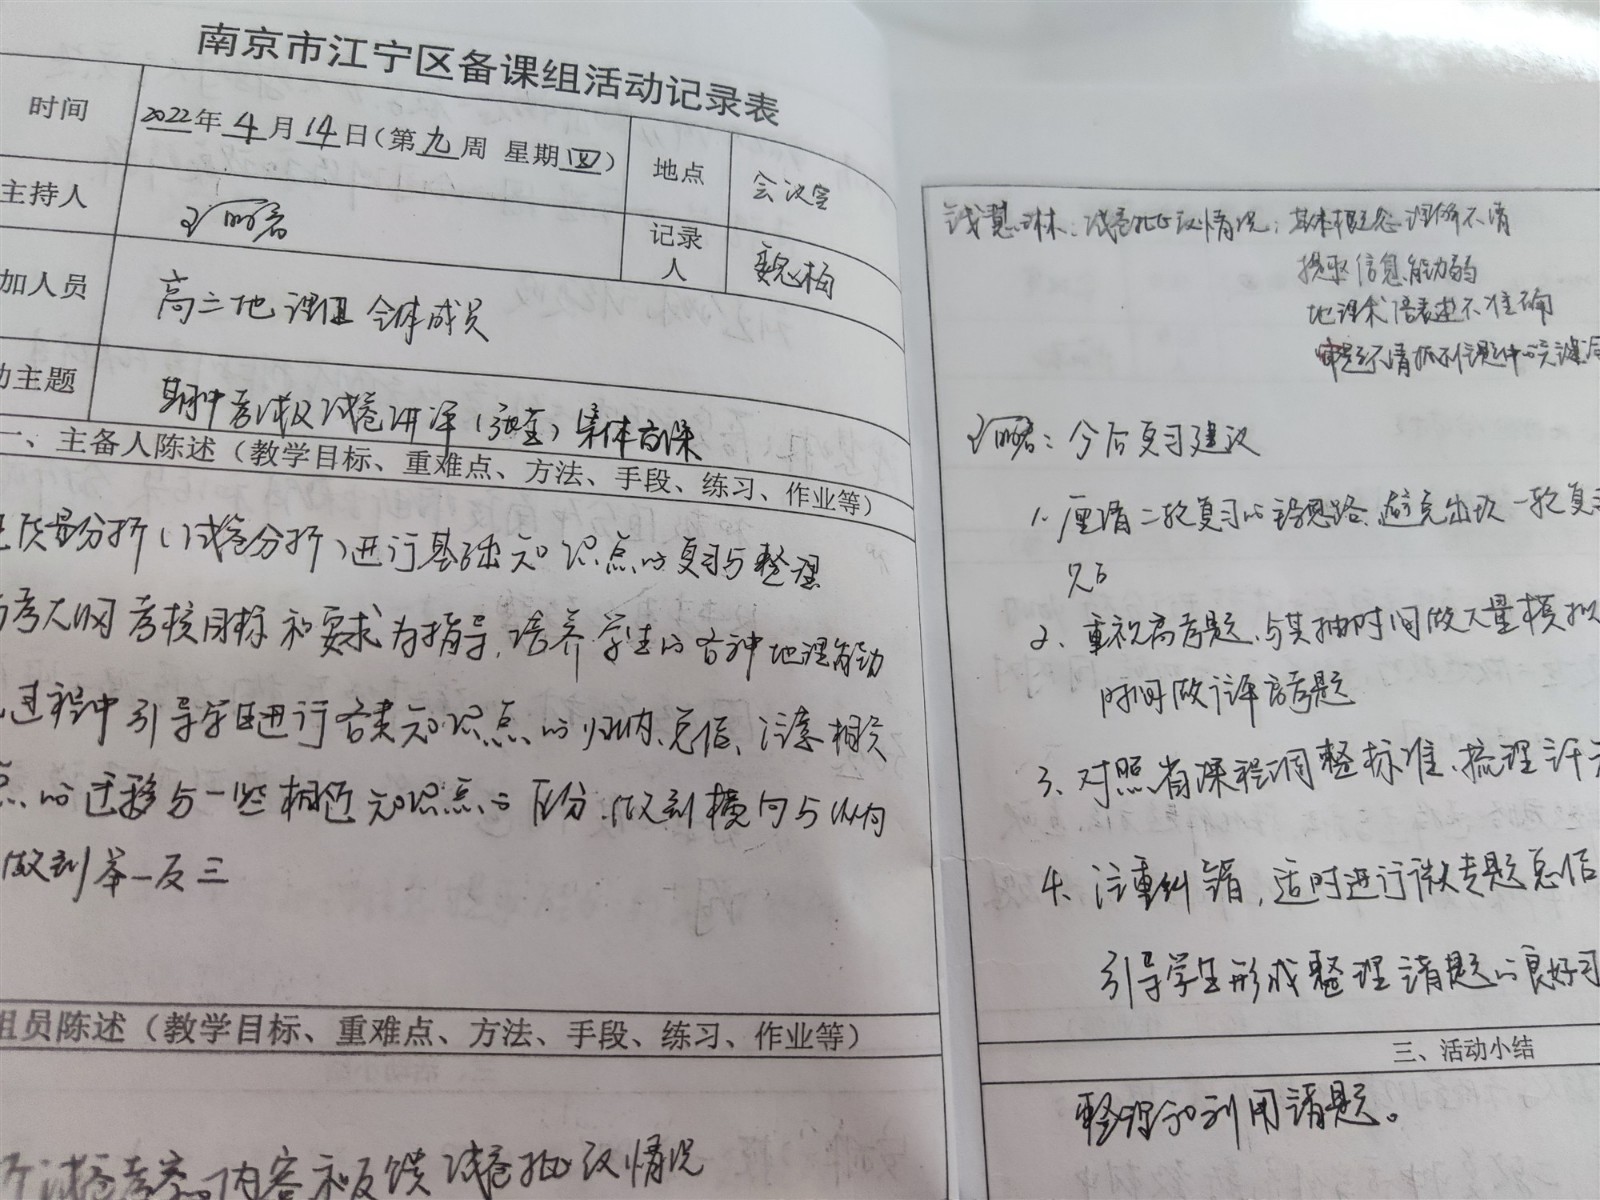 南京市江宁区备课组活动记录表
时间 2022年4月14日(第九周 星期四) 地点 会议室
主持人 记录人 魏柏
加人员 高三地理组全体成员
动主题 期中考试及试卷讲评()集体备课
一、主备人陈述(教学目标、重难点、方法、手段、练习、作业等)
质量分析(试卷分析)进行基础知识点的复习与整理
考大纲考核目标和要求为指导,培养学生的各种地理能力
过程中引导学生进行各类知识点的归纳、总结、注意相关
点的迁移与一些相近知识点的区分.做到横向与纵向
做到举一反三
组员陈述(教学目标、重难点、方法、手段、练习、作业等)
析试卷考察内容和反馈试卷批改情况
钱慧琳:试卷批改情况:基本概念理解不清
提取信息能力弱
地理术语表述不准确
审题不清抓不住题中的关键
今后复习建议
1.厘清二轮复习的主要思路,避免出现一轮复习
2、重视高考题、与其抽时间做大量模拟
时间做评高考题
3、对照省课程调整标准、梳理
4、注重纠错,适时进行微专题总结
引导学生形成整理错题的良好习
三、活动小结
整理和利用错题。